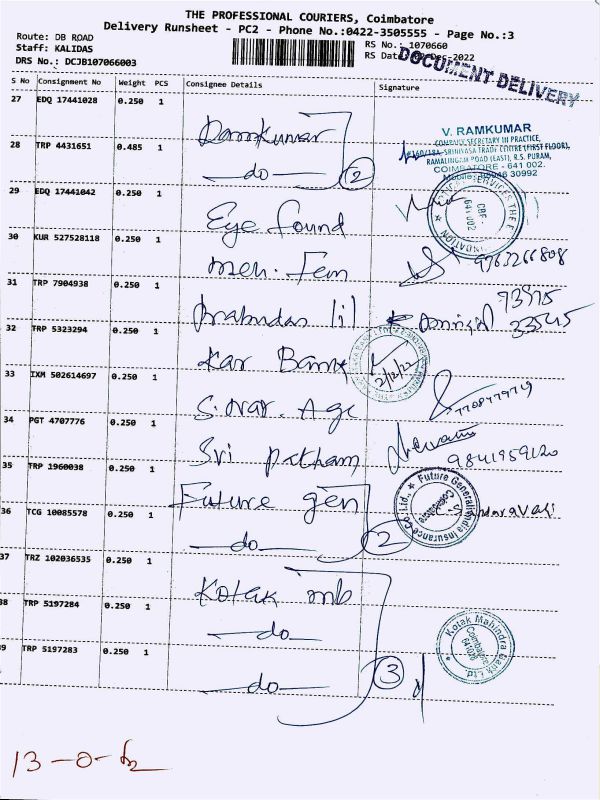 THE PROFESSIONAL COURIERS, Coimbatore
Delivery Runsheet - PC2 - Phone No.:0422-3505555 - Page No.:3
Route: DB ROAD
Staff: KALIDAS
DRS No.: DCJB107066003
RS No.: 1070660
RS Dat -Dec-2022
DOCUMENT DELIVERY
S No Consignment No Weight PCS Consignee Details Signature
27 EDQ 17441028 0.250 1 Ramkumar
28 TRP 4431651 0.485 1 —do— 2
V. RAMKUMAR
COMPANY SECRETARY IN PRACTICE,
SRINIVASA TRADE CENTRE (FIRST FLOOR),
RAMALINGAM ROAD (EAST), R.S. PURAM,
COIMBATORE - 641 002.
30992
29 EDQ 17441042 0.250 1 Eye found
CBE-
641 002
30 KUR 527528118 0.250 1 meh. Fem 9763266808
31 TRP 7904938 0.250 1 73975
33545
32 TRP 5323294 0.250 1 Kar Bank 2/12/22
33 IXM 502614697 0.250 1 7708779719
34 PGT 4707776 0.250 1 Sri 9841959120
35 TRP 1960038 0.250 1 Future gen
Future Generali India Insurance Co. Ltd.,
Coimbatore
36 TCG 10085578 0.250 1 —do— 2
37 TRZ 102036535 0.250 1 Kotak mb
38 TRP 5197284 0.250 1 —do—
39 TRP 5197283 0.250 1 —do— 3
Kotak Mahindra Bank Ltd.
Coimbatore